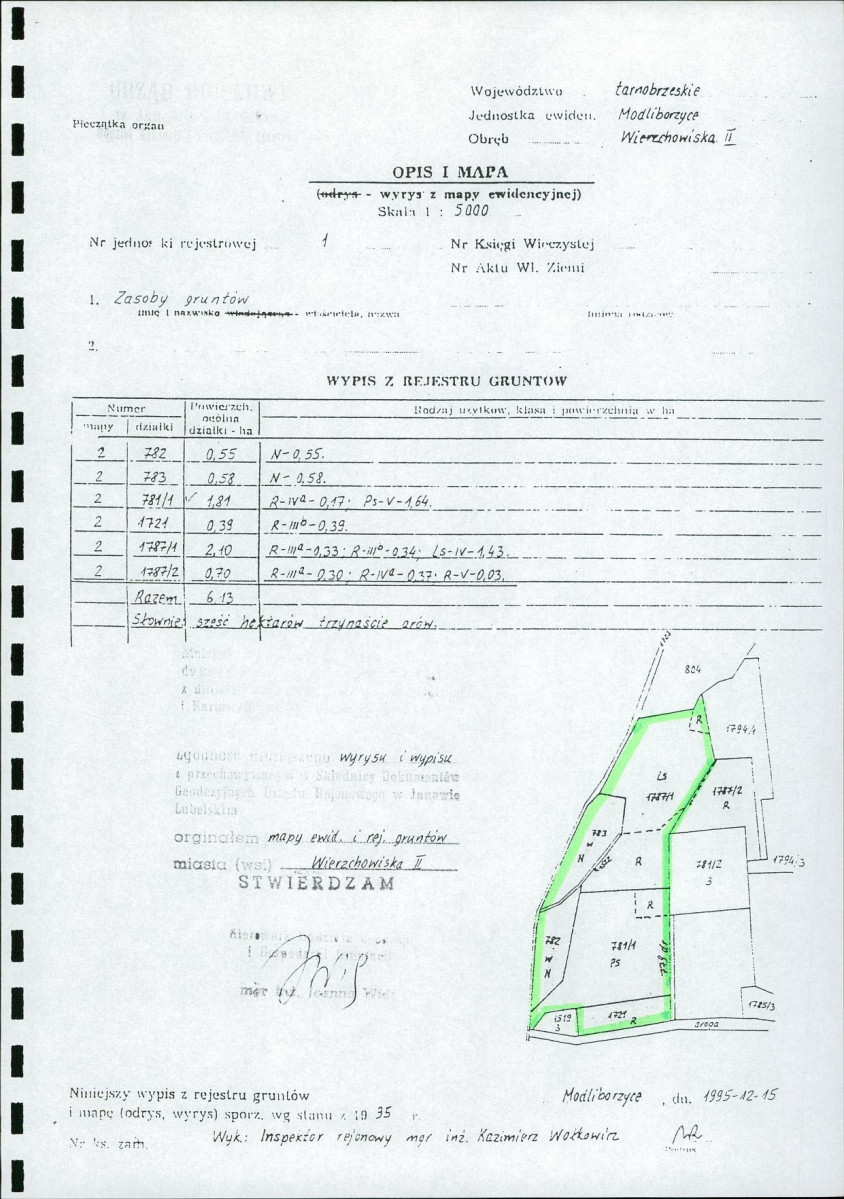 Województwo tarnobrzeskie
Jednostka ewiden. Modliborzyce
Pieczątka organ
Obręb Wierzchowiska II
OPIS I MAPA
(odrys - wyrys z mapy ewidencyjnej)
Skala 1 : 5000
Nr jednos ki rejestrowej 1
Nr Księgi Wieczystej
Nr Aktu Wł. Ziemi
1. Zasoby gruntów
imię i nazwisko władającego - właściciela, nazwa
Imiona rodziców
2.
WYPIS Z REJESTRU GRUNTÓW
Numer Powierzch. ogólna działki - ha Rodzaj użytków, klasa i powierzchnia w ha
mapy działki
2 782 0,55 N-0,55.
2 783 0,58 N-0,58.
2 781/1 ✓ 1,81 R-IVa-0,17; Ps-V-1,64.
2 1721 0,39 R-IIIb-0,39.
2 1787/1 2,10 R-IIIa-0,33; R-IIIb-0,34; Ls-IV-1,43.
2 1787/2 0,70 R-IIIa-0,30; R-IVa-0,37; R-V-0,03.
Razem 6.13
Słownie: sześć hektarów trzynaście arów.
804
R
1794/4
Ls
1787/1
1787/2
R
783
W
N
R
781/2
3
1794/3
R
782
W
N
781/1
Ps
1785/3
1721
R
droga
Zgodność niniejszego wyrysu i wypisu
z przechowywanym w Składnicy Dokumentów
Geodezyjnych Urzędu Rejonowego w Janowie
Lubelskim
orginałem mapy ewid. i rej. gruntów
miasta (wsi) Wierzchowiska II
STWIERDZAM
mgr inż. Joanna
Niniejszy wypis z rejestru gruntów
i mapę (odrys, wyrys) sporz. wg stanu z 19 95 r.
Modliborzyce, dn. 1995-12-15
Nr ks. zam.
Wyk.: Inspektor rejonowy mgr inż. Kazimierz Wołkowicz
Podpis